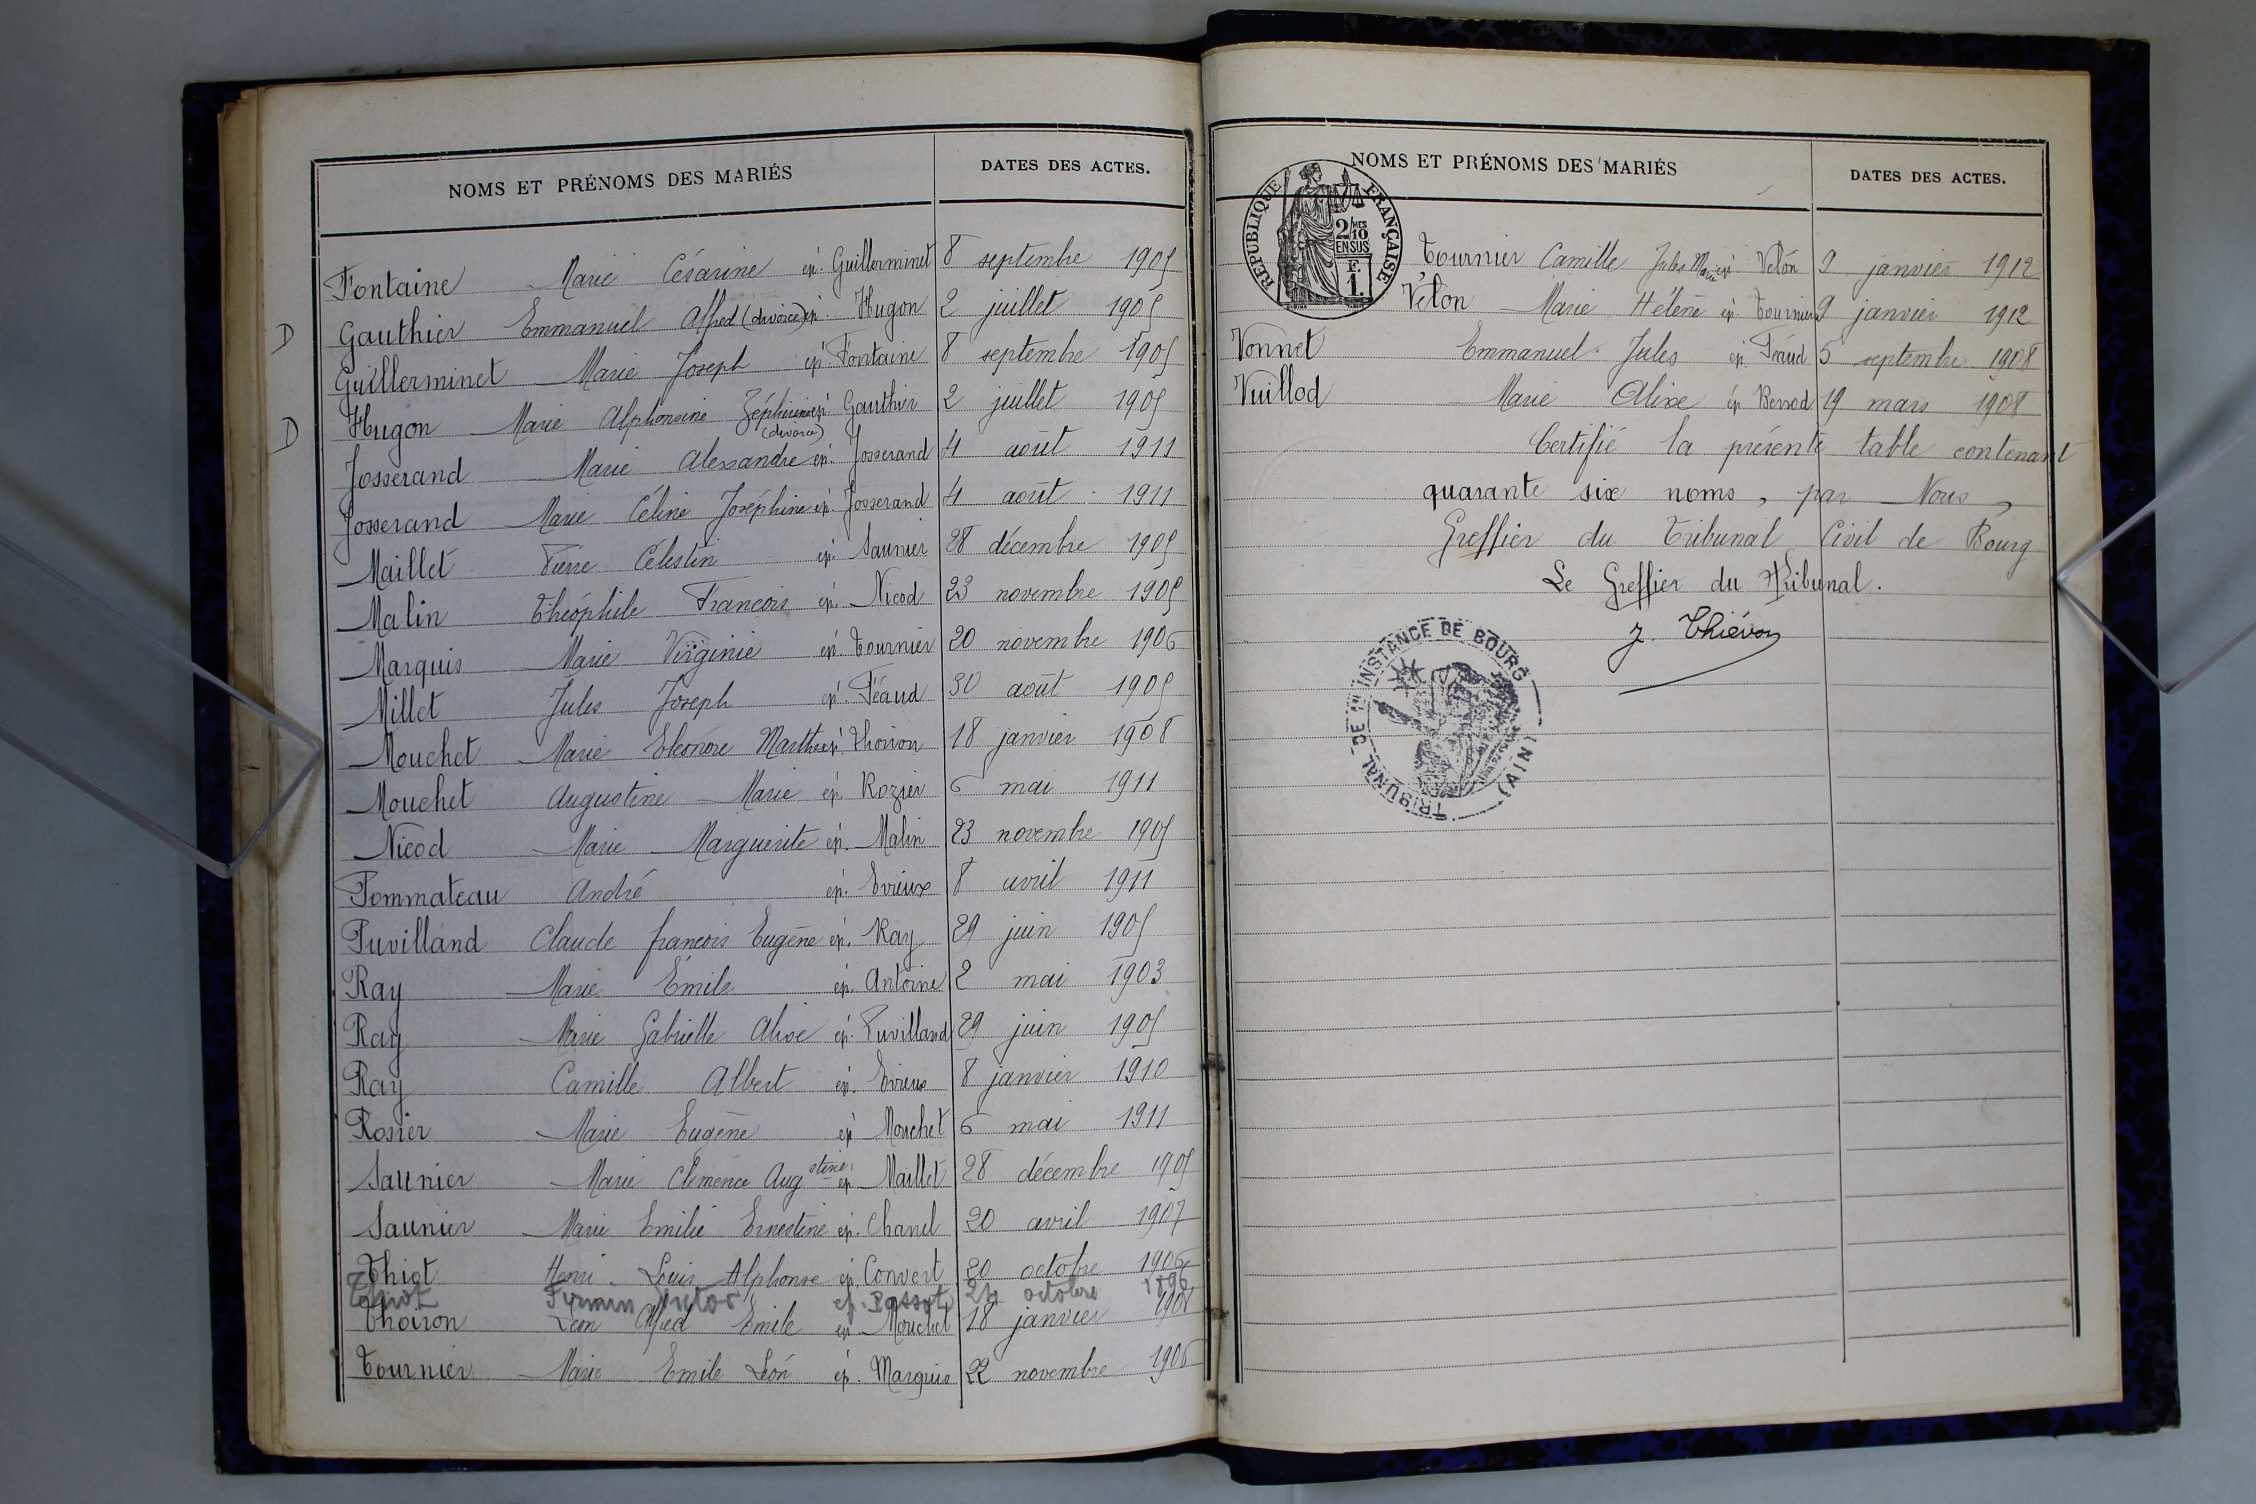 NOMS ET PRÉNOMS DES MARIÉS DATES DES ACTES.
Fontaine Marie Césarine ép. Guillerminet 8 septembre 1905
D Gauthier Emmanuel Alfred (divorcé) ép. Hugon 2 juillet 1905
Guillerminet Marie Joseph ép. Fontaine 8 septembre 1905
D Hugon Marie Alphonsine Zéphirine ép. Gauthier 2 juillet 1905
(divorce)
Josserand Marie Alexandre ép. Josserand 4 août 1911
Josserand Marie Céline Joséphine ép. Josserand 4 août 1911
Maillet Pierre Célestin ép. Saunier 28 décembre 1905
Malin Théophile François ép. Nicod 23 novembre 1905
Marquis Marie Virginie ép. Tournier 20 novembre 1906
Millet Jules Joseph ép. Féaud 30 août 1905
Mouchet Marie Eléonore Marthe ép. Thoiron 18 janvier 1908
Mouchet Augustine Marie ép. Rozier 6 mai 1911
Nicod Marie Marguerite ép. Malin 23 novembre 1905
Pommateau André ép. Evrieux 8 avril 1911
Puvilland Claude françois Eugène ép. Ray 29 juin 1905
Ray Marie Émile ép. Antoine 2 mai 1903
Ray Marie Gabrielle Alice ép. Puvilland 29 juin 1905
Ray Camille Albert ép. Evrieux 8 janvier 1910
Rosier Marie Eugène ép. Mouchet 6 mai 1911
Saunier Marie Clémence Augstine ép. Maillet 28 décembre 1905
Saunier Marie Emilie Ernestine ép. Chanel 20 avril 1907
Thiot Henri Louis Alphonse ép. Convert 20 octobre 1906
Thiot Firmin Victor ép. Passot 24 octobre 1896
Thoiron Léon Alfred Emile ép. Mouchet 18 janvier 1908
Tournier Marie Emile Léon ép. Marquis 22 novembre 1906
NOMS ET PRÉNOMS DES MARIÉS DATES DES ACTES.
RÉPUBLIQUE FRANÇAISE
2/MES
10
EN SUS
F.
1.
Tournier Camille Jules Marie ép. Veton 9 janvier 1912
Veton Marie Hélène ép. Tournier 9 janvier 1912
Vonnet Emmanuel Jules ép. Féaud 5 septembre 1908
Vuillod Marie Alixe ép. Berrod 19 mars 1908
Certifié la présente table contenant
quarante six noms, par Nous,
Greffier du Tribunal Civil de Bourg
Le Greffier du Tribunal.
J. Thiévon
TRIBUNAL DE 1ère INSTANCE DE BOURG (AIN)